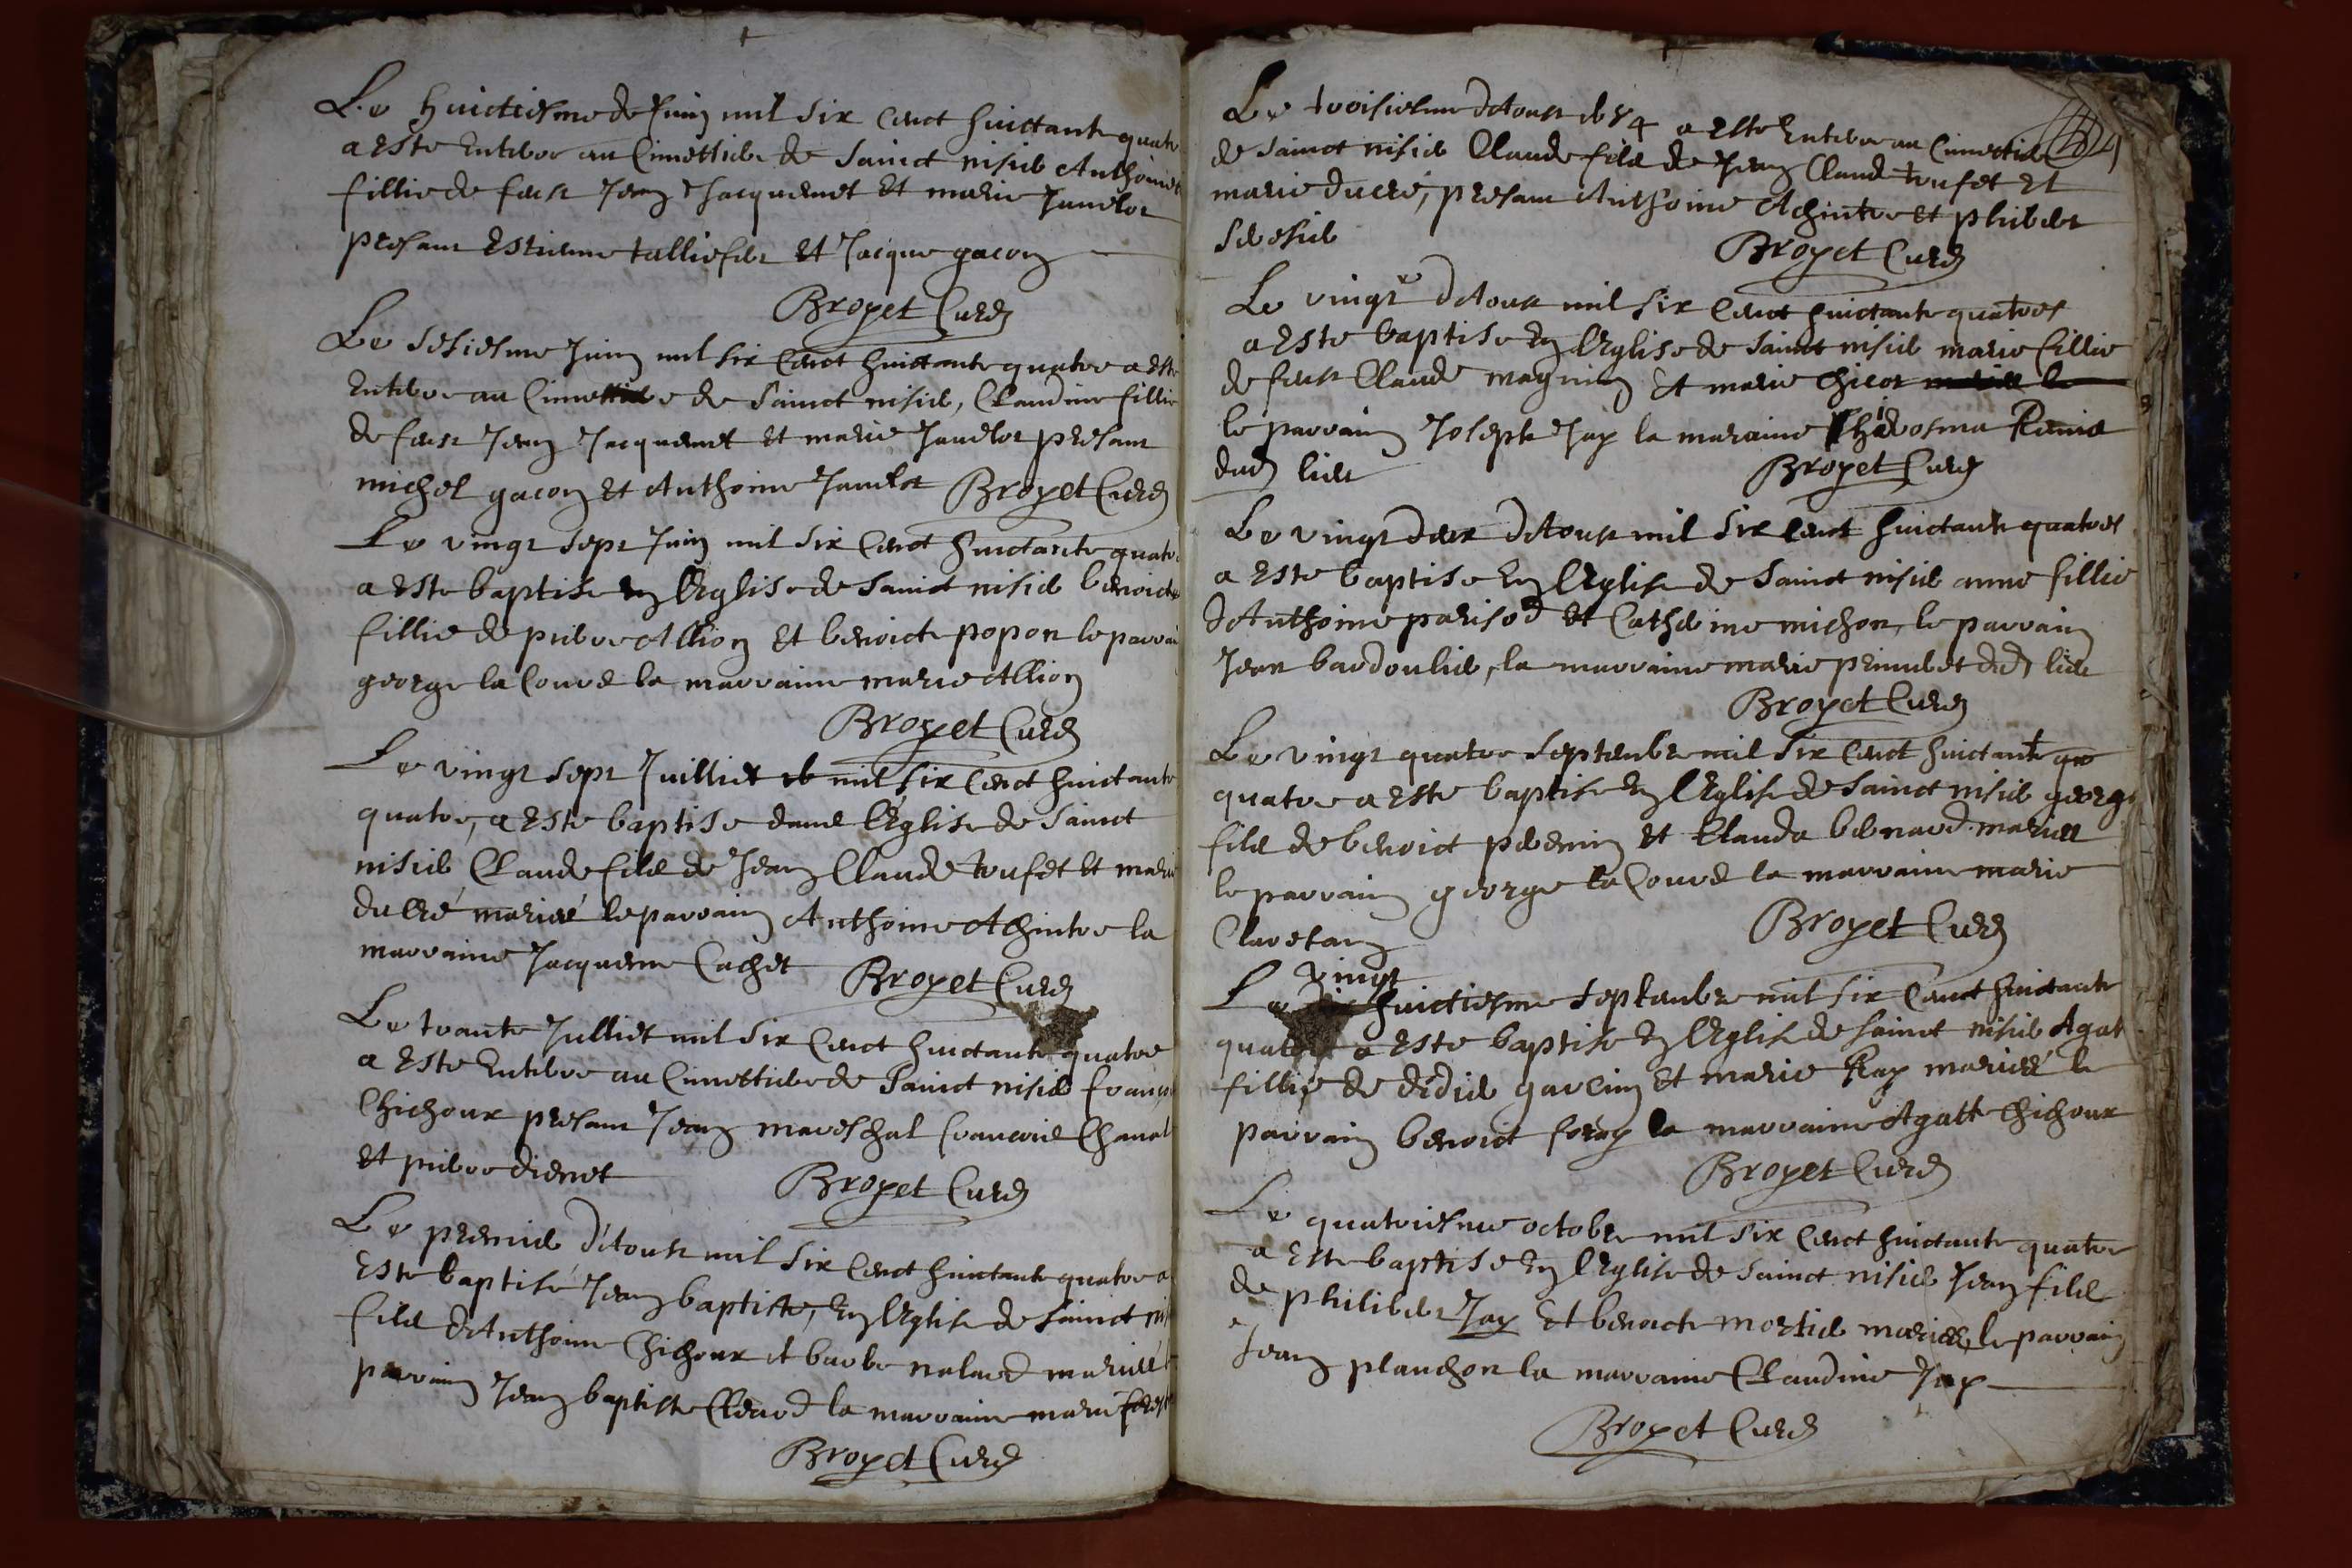 Le huictiesme de Juin mil six cent huictante quatre
a esté enterré au Cimettiere de Sainct nisier Anthoinet
fillie de feust Jean Jacquemet Et marie Janelot
presant Estienne talliefer Et Jacque gacon
Broyet Curé
Le sesiesme Juin mil six cent huictante quatre a esté
Enterre au Cimettiere de Sainct nisier, Claudine fillie
de feust Jean Jacquemet Et marie Janelot presant
michel gacon Et Anthoine Janelot Broyet Curé
Le vingt sept Juin mil six cent huictante quatre
a esté baptise en l'Eglise de Sainct nisier benoicte
fillie de pierre Allion Et benoicte popon le parrain
george la Coure la marraine marie Allion
Broyet Curé
Le vingt sept Juilliet mil six cent huictante
quatre, a esté baptise dans l'Eglise de Sainct
nisier Claude fils de Jean Claude trufet Et marie
ducré mariés le parrain Anthoine Achintre la
marraine Jacqueme Cachet Broyet Curé
Le trante Julliet mil six cent huictante quatre
a esté Enterre au Cimettiere de Sainct nisier françois
Chichoux presant Jean mareschal francois Chanal
Et pierre dienet
Broyet Curé
Le premier d'Aoust mil six cent huictante quatre a
Esté baptisé Jean baptiste, en l'Eglise de Sainct ni
fils d'Anthoine Chichoux et barbe nalard mariés
parrain Jean baptiste Clerard la marraine marie
Broyet Curé
Le troisiesme d'Aoust 1684 a esté Enterre au Cimettiere
de Sainct nisier Claude fils de Jean Claude trufet Et
marie ducré, presant Anthoine Achintre Et philibert
Broyet Curé
Le vingt d'Aoust mil six cent huictante quatres
a esté baptise en l'Eglise de Sainct nisier marie fillie
de feust Claude magnin Et marie Chicot
le parrain Joseph Jay la maraine
dud lieu
Broyet Curé
Le vingt deux d'Aoust mil six cent huictante quatres
a esté baptise en l'Eglise de Sainct nisier anne fillie
d'Anthoine parisod Et Catherine michon, le parrain
Jean bardoulier, la marraine marie dud lieu
Broyet Curé
Le vingt quatre Septembre mil six cent huictante qu
quatre a esté baptise en l'Eglise de Sainct nisier george
fils de benoict pdemin Et Clauda bernard mariés
le parrain george la Coure la marraine marie
Clavetan
Broyet Curé
Le vingt huictiesme Septembre mil six cent huictante
quatre a esté baptise en l'Eglise de Sainct nisier Agat
fillie de didier garcin Et marie Ray mariés le
parrain benoict foray la marraine Agatt Chichoux
Broyet Curé
Le quatriesme octobre mil six cent huictante quatre
a Esté baptise en l'Eglise de Sainct nisier Jean fils
de philibert Jay Et benoicte mortier mariés, le parrain
Jean planchon la marraine Claudine Jay
Broyet Curé